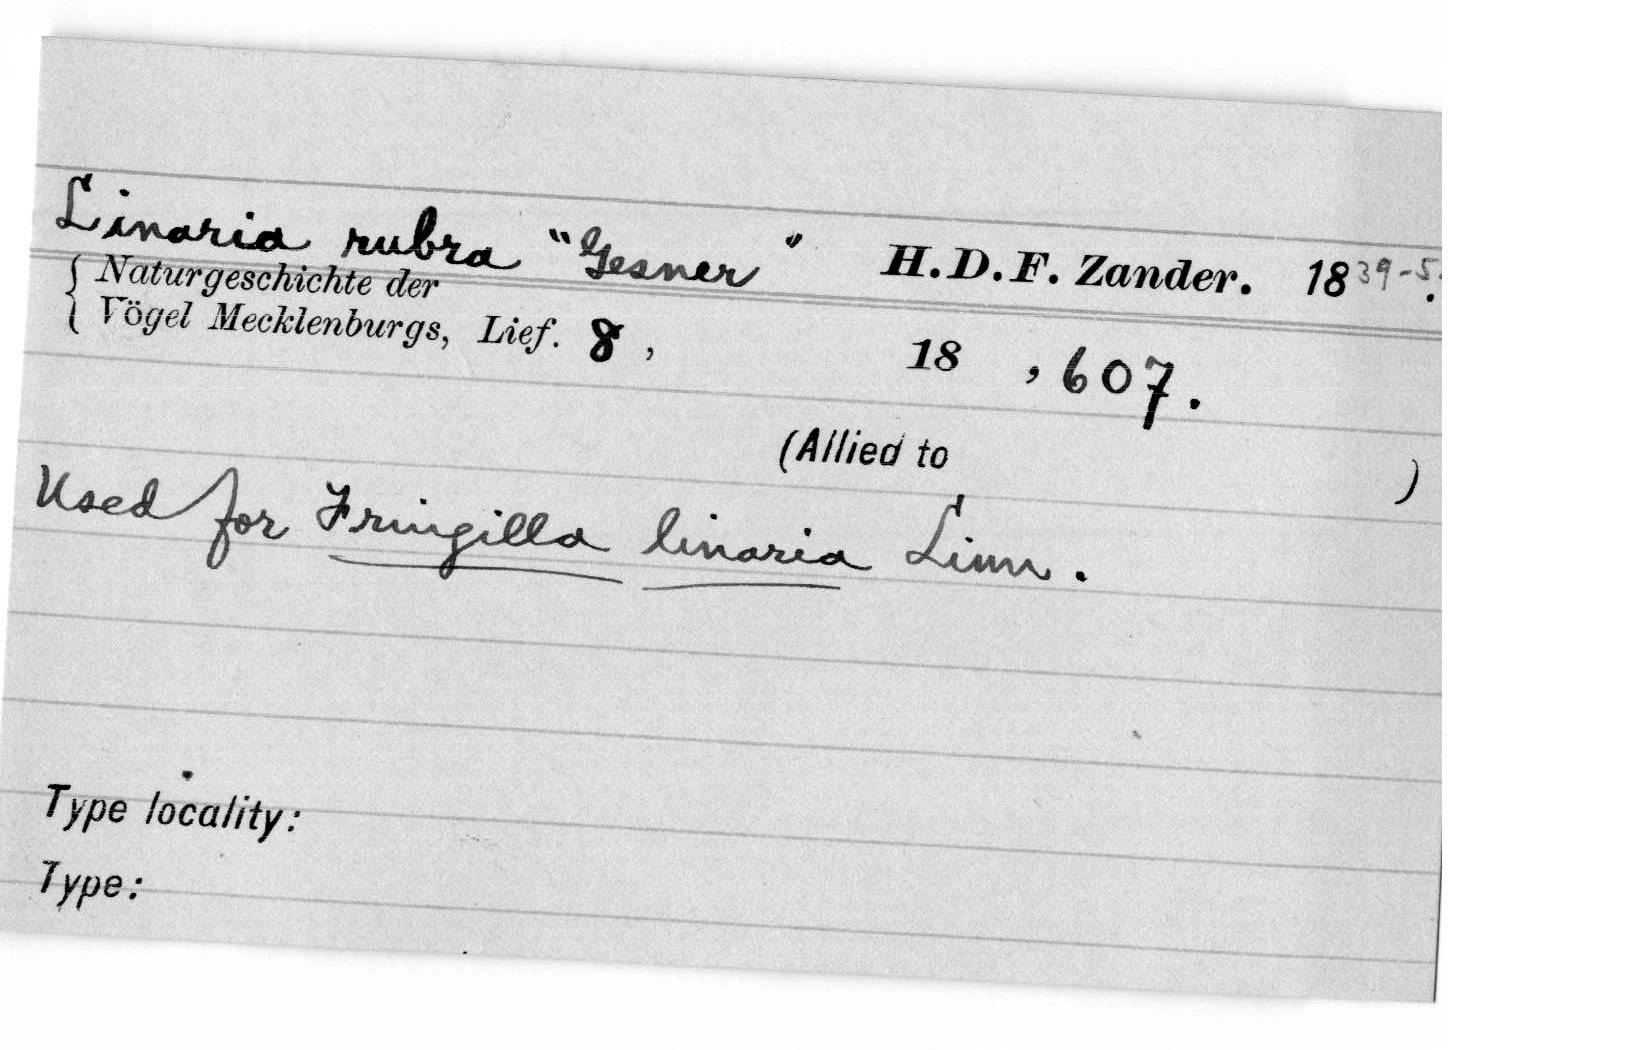 Linaria rubra "Gesner" H.D.F. Zander. 1839-5.
Naturgeschichte der
Vögel Mecklenburgs, Lief. 8, 18 , 607.
(Allied to )
Used for Fringilla linaria Linn.
Type locality:
Type: